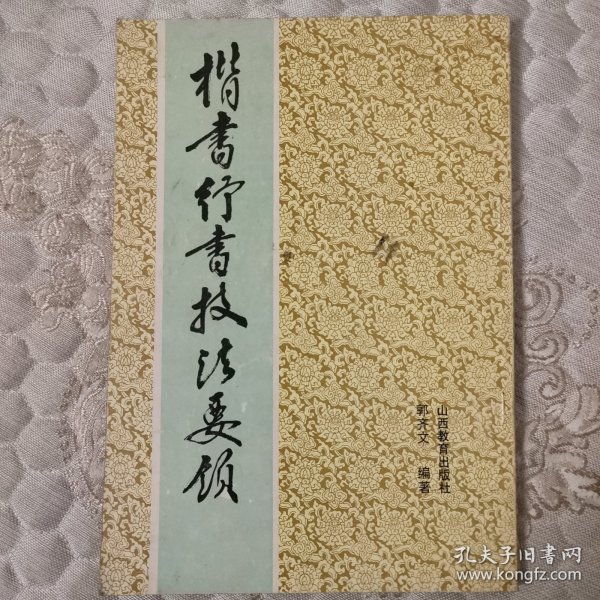 楷书行书技法要领
山西教育出版社
郭齐文 编著
孔夫子旧书网
www.kongfz.com